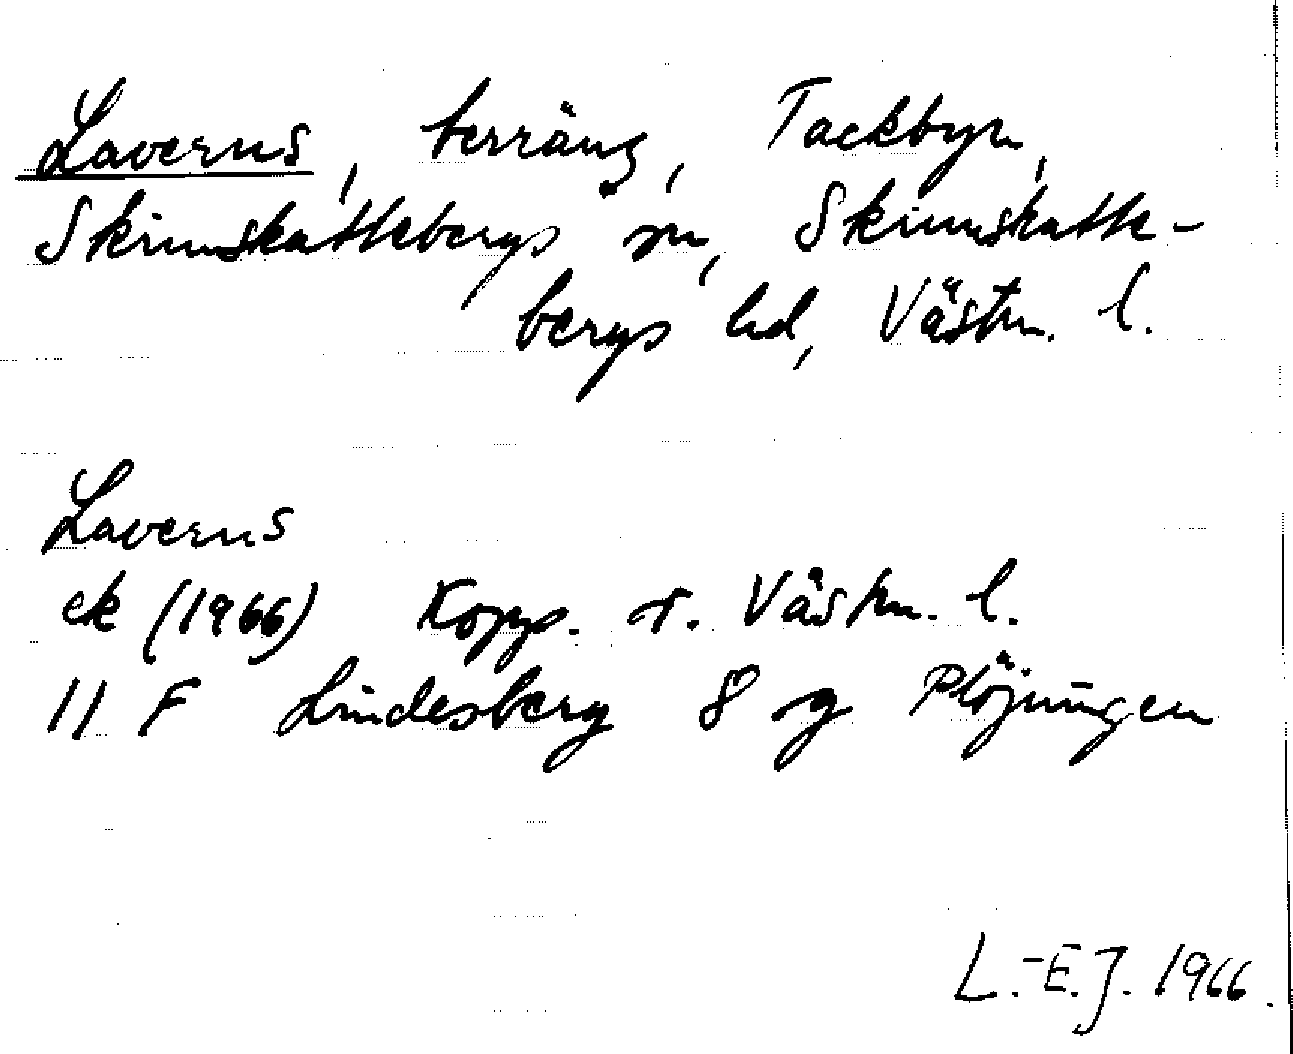 Laverns, terräng, Tackbyn,
Skinnskattebergs sn, Skinnskatte-
bergs hd, Västm. l.
Laverns
ek (1966) Kopp. o. Västm. l.
11 F Lindesberg 8 g Plöjningen
L.-E.J. 1966.